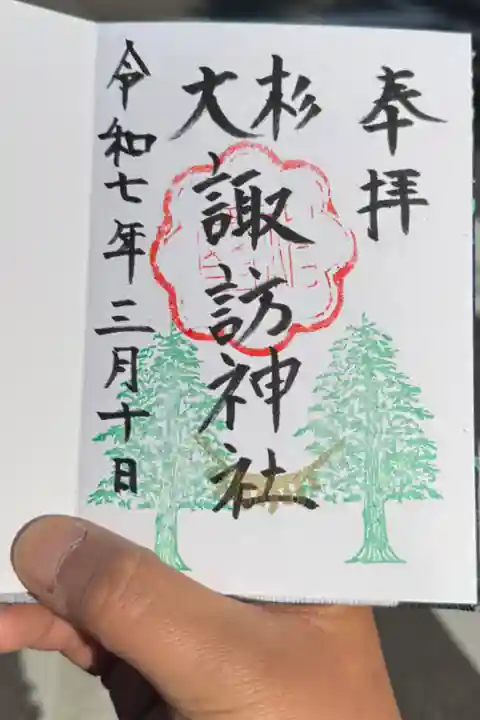 奉拝
大杉
諏訪神社
令和七年三月十日